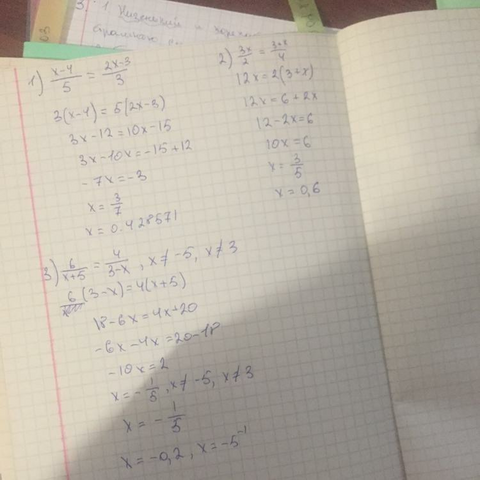 1) (x-4)/5 = (2x-3)/3
3(x-4)=5(2x-3)
3x-12=10x-15
3x-10x=-15+12
-7x=-3
x=3/7
x=0.428571
2) 3x/2 = (3+x)/4
12x=2(3+x)
12x=6+2x
12-2x=6
10x=6
x=3/5
x=0,6
3) 6/(x+5) = 4/(3-x), x≠-5, x≠3
6(3-x)=4(x+5)
18-6x=4x+20
-6x-4x=20-18
-10x=2
x=-1/5, x≠-5, x≠3
x=-1/5
x=-0,2, x=-5⁻¹